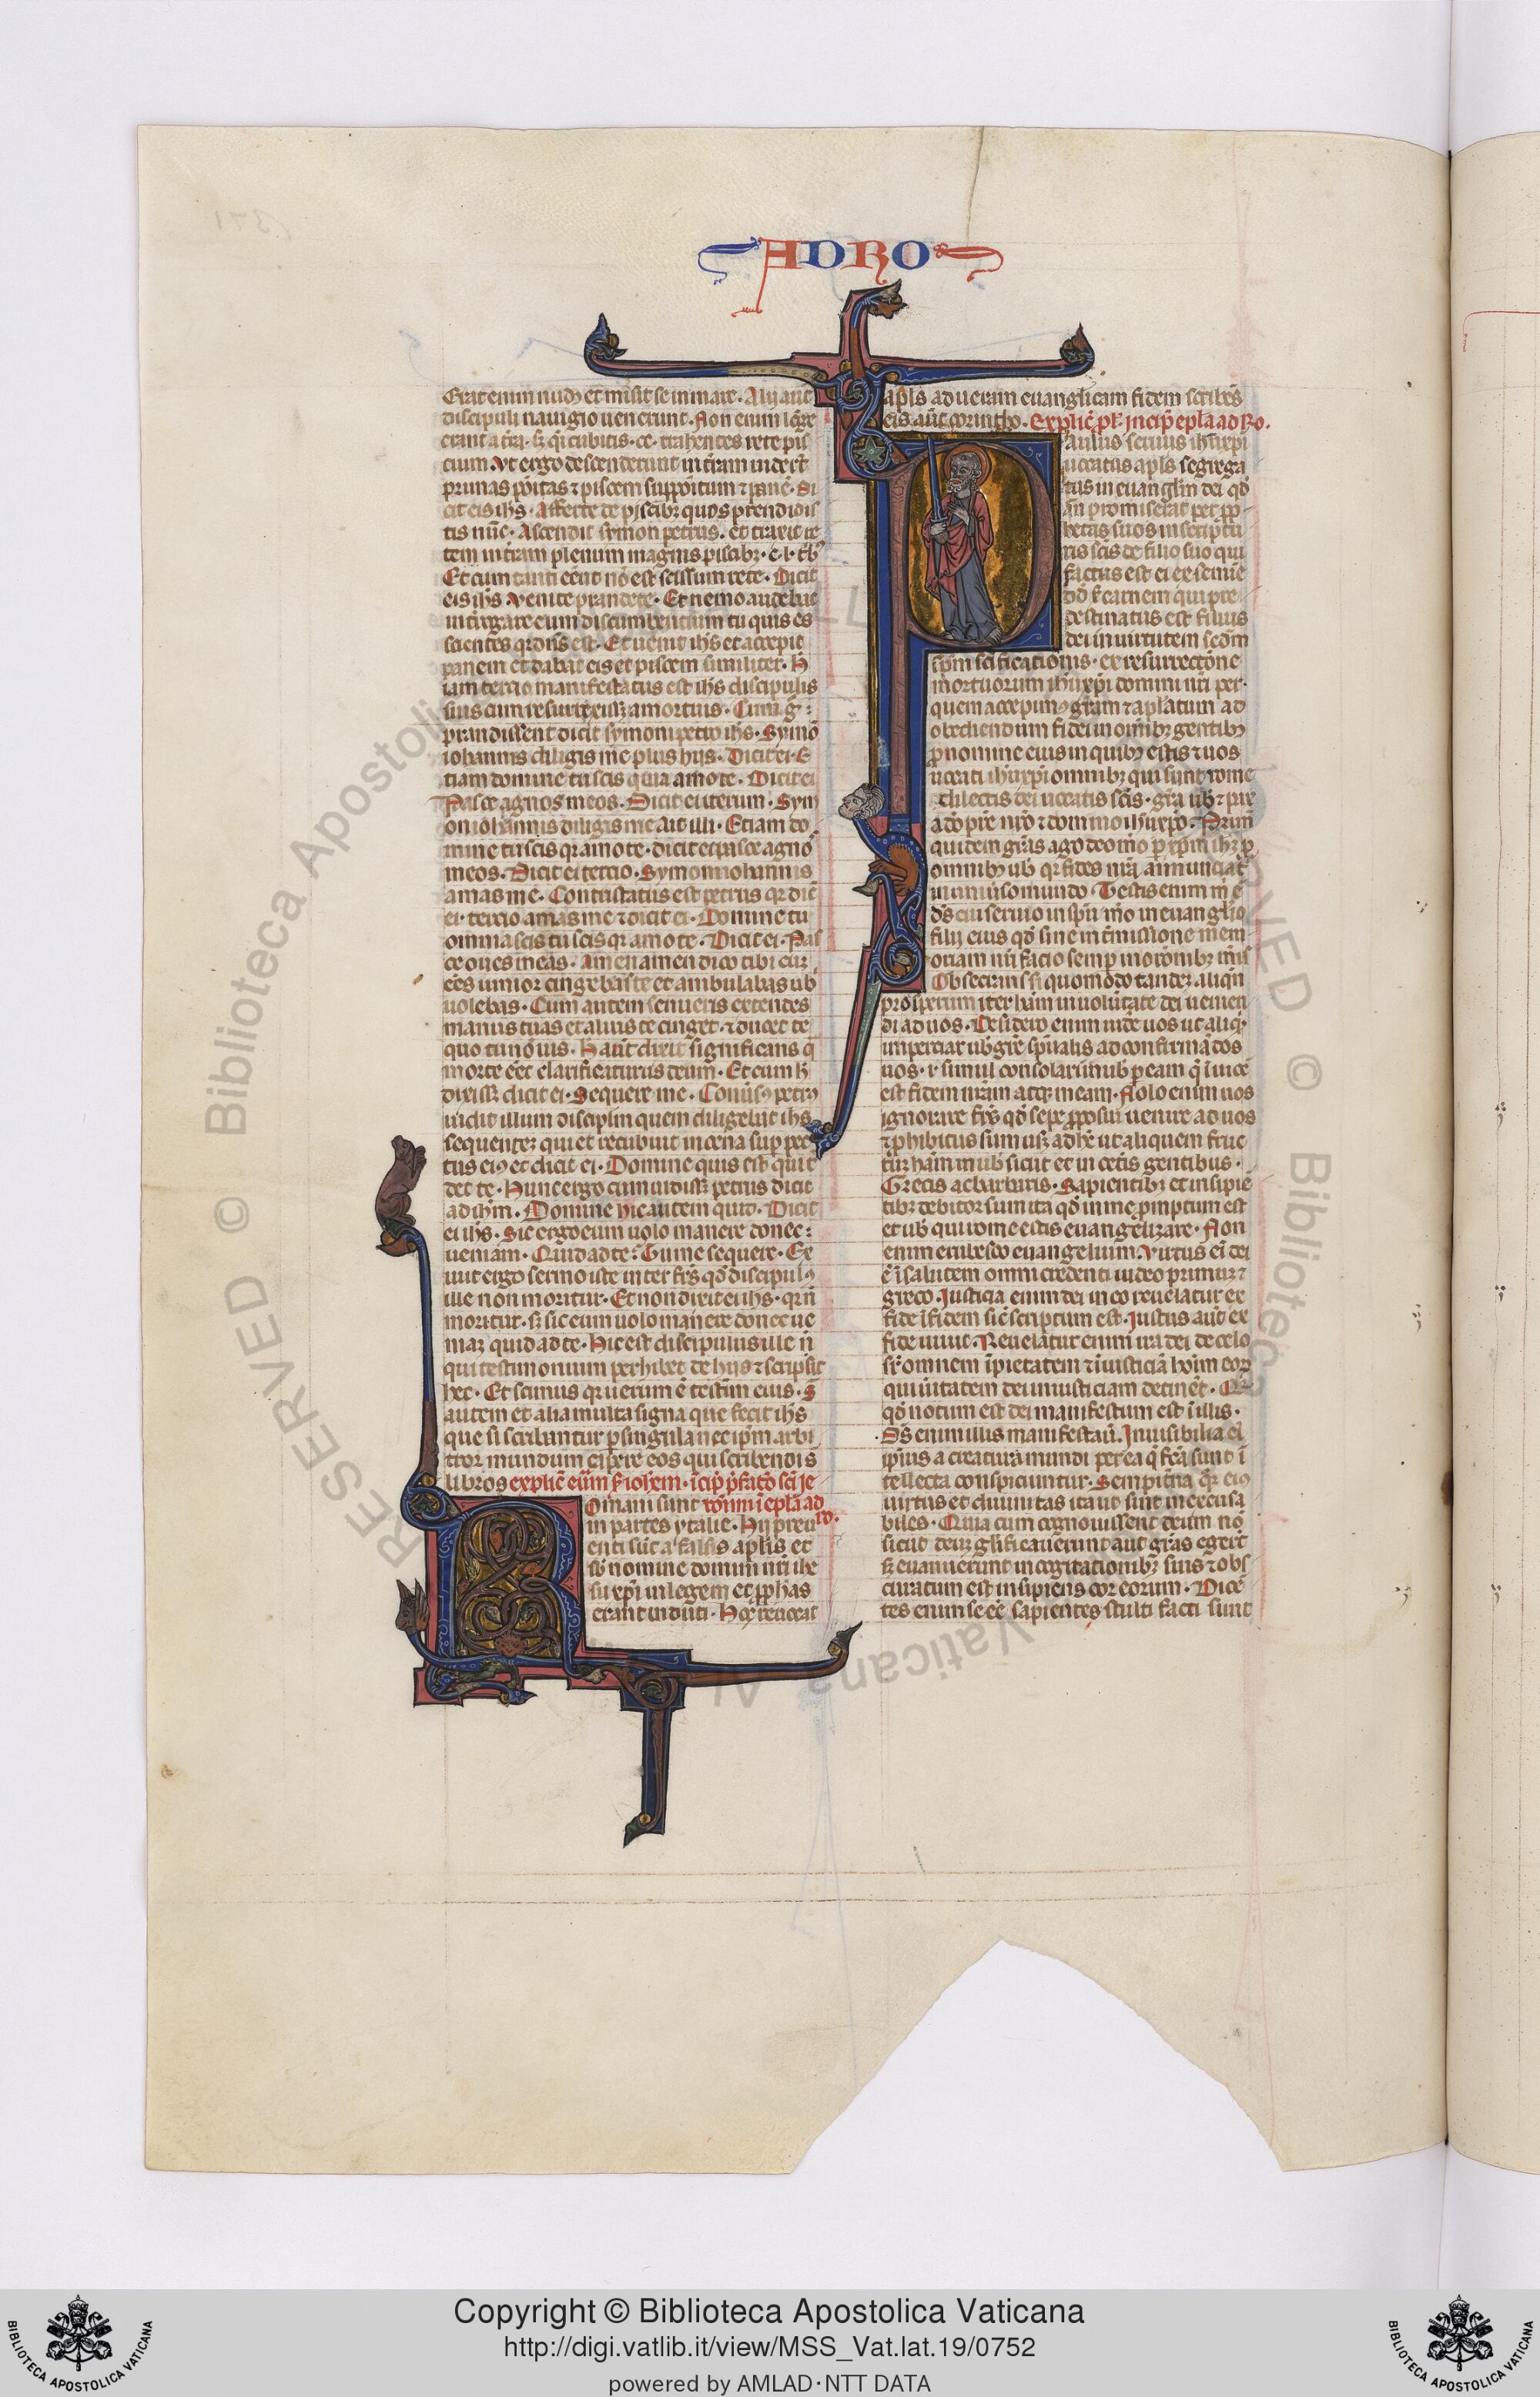 ADRO
Erat enim nudꝯ et misit se in mare. Alij aut̃
discipuli nauigio uenerunt. Non enim lõge
erant a t̃ra. sꝫ q̃i cubitis. cc. trahentes rete pis
cium. Vt ergo descenderunt in t̃ram uider̃t
prunas põitas ⁊ piscem suppõitum ⁊ panẽ. Di
cit eis ihs̃. Afferte de piscibꝫ quos prendidis
tis nũc. Ascendit symon petrus. et traxit re
tem in t̃ram plenum magnis piscibꝫ. c. l. t̃b
Et cum tanti eẽnt nõ est scissum rete. Dicit
eis ihs̃. Venite prandete. Et nemo audebat
int̃rogare eum discumbentium tu quis es
scientes qꝛ dñs est. Et uenit ihs̃ et accepit
panem et dabat eis et piscem similiter. H̃
iam tercio manifestatus est ihs̃ discipulis
suis cum resurrexissꝫ a mortuis. Cum g̃
prandissent dicit symoni petro ihs̃. Symõ
iohannis diligis me plus hijs. Dicit ei. E
tiam domine tu scis quia amo te. Dicit ei
Pasce agnos meos. Dicit ei iterum. Sym
on iohannis diligis me. Ait illi. Etiam do
mine tu scis qꝛ amo te. dicit ei pasce agno
meos. Dicit ei tercio. Symon iohannis
amas me. Contristatus est petrus qꝛ dix̃
ei. tercio amas me ⁊ dicit ei. Domine tu
omnia scis tu scis qꝛ amo te. Dicit ei. Pas
ce oues meas. Amen amen dico tibi cuꝫ
eẽs iunior cingebas te et ambulabas ub
uolebas. Cum autem senueris extendes
manus tuas et alius te cinget. ⁊ ducet te
quo tu nõ uis. H̃ aut̃ dixit significans q̃
morte eẽt clarificaturus deum. Et cum h̃
dixissꝫ dicit ei. Sequere me. Conũsꝯ petrꝯ
uidit illum discipl̃m quem diligebat ihs̃
sequenteꝫ qui et recubuit in cena sup pec
tus eiꝯ et dicit ei. Domine quis est qui t̃
det te. Hunc ergo cum uidissꝫ petrus dicit
ad ihm̃. Domine hic autem quid. Dicit
ei ihs̃. Sic ergo eum uolo manere donec
ueniam. Quid ad te. Tu me sequere. Ex
iuit ergo sermo iste inter fr̃s qd̃ discipulꝯ
ille non moritur. Et non dixit ei ihs̃. qꝛ ñ
moritur. sꝫ sic eum uolo manere donec ue
niaꝫ quid ad te. Hic est discipulus ille ñ
qui testimonium perhibet de hijs ⁊ scripsit
hec. Et scimus qꝛ uerum ẽ testim̃ eius. S̃
autem et alia multa signa que fecit ihs̃
que si scribantur p singula nec ip̃m arbi
tror mundum capere eos qui scribendi s̃
libros explic̃ euũm s̃ ioh̃em. ĩcip̃ p̃fatõ sc̃i je
Romani sunt rõnimi ĩ epl̃a ad
in partes ytalie. Hij preu ro.
enti sũt a falsis apl̃is et
sb̃ nomine domini nr̃i ihe
su xp̃i in legem et ꝓphas
erant induti. Hos reuocat
apl̃s ad ueram euanglicam fidem scribẽs
eis aut̃ corintho. Explic̃ pl̃. incip̃ epl̃a ad Ro.
Paulus seruus ih̃u xp̃i
uocatus apl̃s segrega
tus in euangl̃m dei qd̃
añ promiserat per ꝓp
hetas suos in scriptu
ris sc̃is de filio suo qui
factus est ei ex semie
dd̃ s̃ carnem qui pre
destinatus est filius
dei in uirtutem sc̃dm
sp̃m sc̃ificationis. ex resurrectõne
mortuorum ih̃u xp̃i domini nr̃i per.
quem accepimꝯ gr̃am ⁊ apl̃atum ad
obediendum fidei in omĩbꝫ gentibꝫ
ꝓ nomine eius in quibꝫ estis ⁊ uos
uocati ih̃u xp̃i omnibꝫ qui sunt rome
dilectis dei uocatis sc̃is. gr̃a uƀ ⁊ pax
a dõ pr̃e nr̃o ⁊ domino ih̃u xp̃o. Primũ
quidem gr̃as ago deo m̃o p xp̃m ih̃m p
omnibꝫ uƀ qꝛ fides ur̃a annunciat̃
in uniũso mundo Testis enim m̃ ẽ
ds̃ cui seruio in sp̃u m̃o in euanglio
filij eius qd̃ sine int̃missione mem
oriam uri facio semp in or̃onibꝫ m̃is
Obsecrans si quomodo tandeꝫ aliqñ
prosperum iter ham in uolũtate dei uenien
di ad uos. Desidero enim uidẽ uos ut aliqꝫ
impertiar uƀ gr̃e sp̃ualis ad confirmãdos
uos. i. simul consolari in uƀ p eam q̃ ĩuicẽ
est fidem ur̃am atqꝫ meam. Nolo enim uos
ignorare fr̃s qd̃ sepe ꝓposui uenire ad uos
⁊ phibitus sum usꝫ adhc̃ ut aliquem fruc
tũ ham in uƀ sicut et in cet̃is gentibus.
Grecis ac barbaris. Sapientibꝫ et insipiẽ
tibꝫ debitor sum ita qd̃ in me pmptum est
et uƀ qui rome estis euangelizare. Non
enim erubesco euangelium. Virtus eĩ dei
ẽ ĩ salutem omni credenti iudeo primum ⁊
greco. Iusticia enim dei in eo reuelatur ex
fide ĩ fidem sic̃ scriptum est. Iustus aut̃ ex
fide uiuit. Reuelatur enim ira dei de celo
sr̃ omnem ĩpietatem ⁊ ĩiusticiã hoĩm eoꝝ
qui ũitatem dei in iusticiam detinẽt. Qꝛ
qd̃ notum est dei manifestum est ĩ illis.
Ds̃ enim illis manifestauit. Inuisibilia eĩ
ip̃ius a creatura mundi per ea q̃ fc̃a sunt ĩ
tellecta conspiciuntur. Sempit̃na qꝫ eiꝯ
uirtus et diuinitas ita ut sint inexcusa
biles. Quia cum cognouissent deum nõ
sicut deuꝫ gl̃ificauerunt aut gr̃as egert̃
sꝫ euanuerunt in cogitationibꝫ suis ⁊ obs
curatum est insipiens cor eorum. Dicẽ
tes enim se eẽ sapientes stulti facti sunt
Copyright © Biblioteca Apostolica Vaticana
http://digi.vatlib.it/view/MSS_Vat.lat.19/0752
powered by AMLAD·NTT DATA
BIBLIOTECA APOSTOLICA VATICANA
BIBLIOTECA APOSTOLICA VATICANA